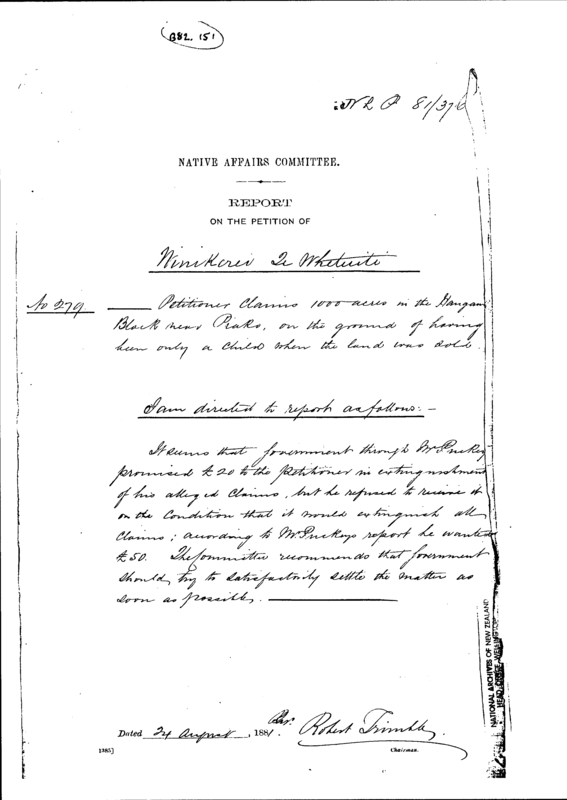 G82.151
N L P 81/376
NATIVE AFFAIRS COMMITTEE.
REPORT
ON THE PETITION OF
Winikerei Te Whetuiti
No 279
Petitioner Claims 1000 acres in the
Block near Piako, on the ground of having
been only a Child when the land was sold.
I am directed to report as follows:—
It seems that Government through Mr Puckey
promised £20 to the Petitioner in extinguishment
of his alleged Claims, but he refused to receive it
on the Condition that it would extinguish all
Claims; according to Mr Puckeys report he wanted
£50. The Committee recommends that Government
should try to satisfactorily settle the matter as
soon as possible.
Dated 24 August, 1881. Robert Trimble.
1385] Chairman.
NATIONAL ARCHIVES OF NEW ZEALAND
HEAD OFFICE WELLINGTON